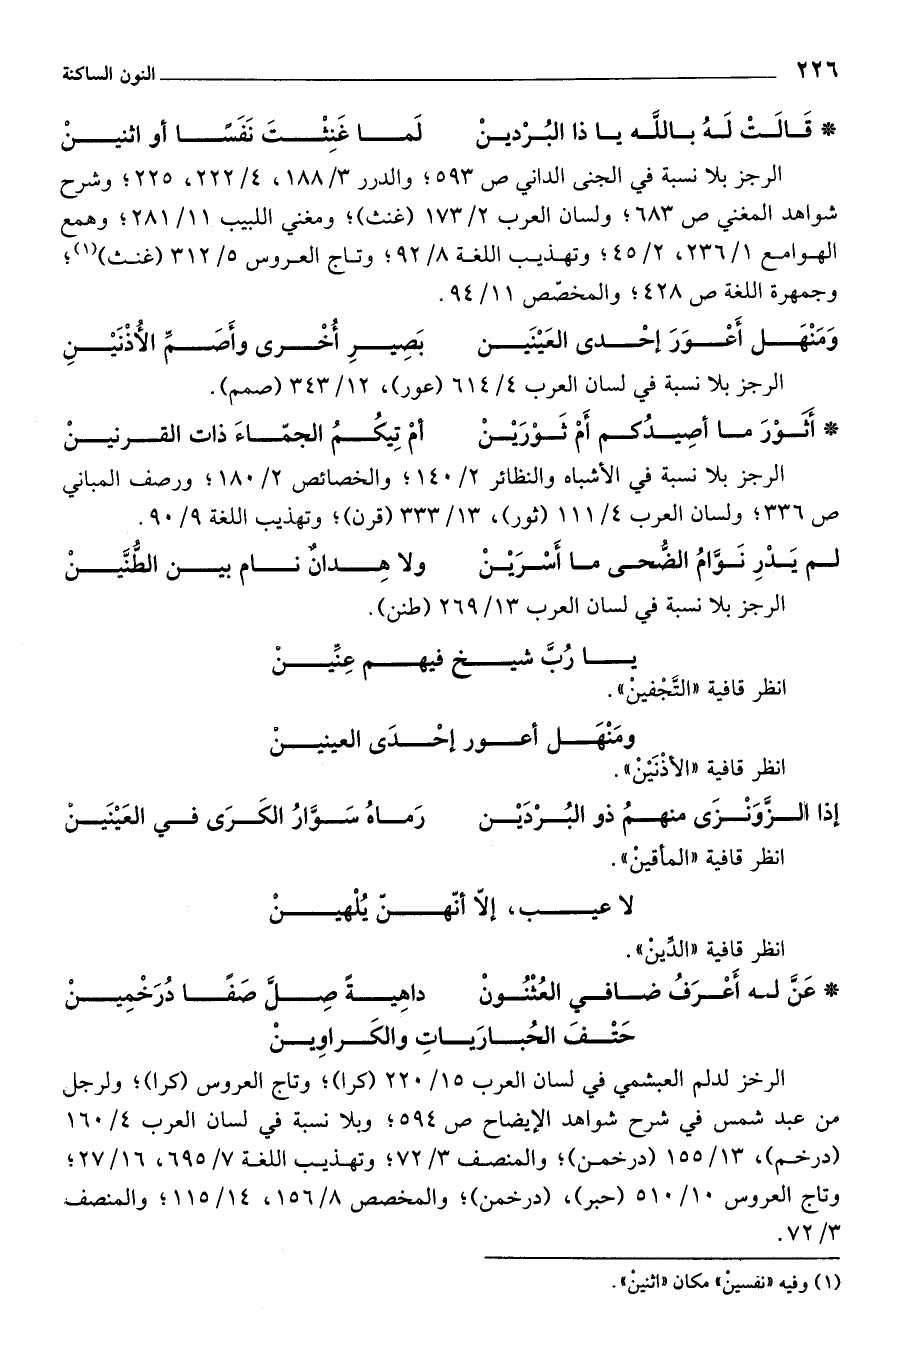 ٢٢٦ النون الساكنة
* قَالَتْ لَهُ بالله يا ذا البُرْدينْ لَما غَنِثْتَ نَفَسًا أو اثنينْ
الرجز بلا نسبة في الجنى الداني ص ٥٩٣؛ والدرر ٣/ ١٨٨، ٤/ ٢٢٢، ٢٢٥؛ وشرح
شواهد المغني ص ٦٨٣؛ ولسان العرب ٢/ ١٧٣ (غنث)؛ ومغني اللبيب ١١/ ٢٨١؛ وهمع
الهوامع ١/ ٢٣٦، ٢/ ٤٥؛ وتهذيب اللغة ٨/ ٩٢؛ وتاج العروس ٥/ ٣١٢ (غنث)(١)؛
وجمهرة اللغة ص ٤٢٨؛ والمخصّص ١١/ ٩٤.
وَمَنْهَلٍ أَعْوَرَ إحْدى العَيْنَينْ بَصِيرِ أُخْرى وأَصَمِّ الأُذْنَيْنِ
الرجز بلا نسبة في لسان العرب ٤/ ٦١٤ (عور)، ١٢/ ٣٤٣ (صمم).
* أَثَوْرَ ما أصِيدُكم أَمْ ثَوْرَيْنْ أمْ تِيكُمُ الجمّاءَ ذات القرنينْ
الرجز بلا نسبة في الأشباه والنظائر ٢/ ١٤٠؛ والخصائص ٢/ ١٨٠؛ ورصف المباني
ص ٣٣٦؛ ولسان العرب ٤/ ١١١ (ثور)، ١٣/ ٣٣٣ (قرن)؛ وتهذيب اللغة ٩/ ٩٠.
لم يَدْرِ نَوَّامُ الضُّحى ما أَسْرَيْنْ ولا هِدانٌ نام بين الطُّنَّينْ
الرجز بلا نسبة في لسان العرب ١٣/ ٢٦٩ (طنن).
يا رُبَّ شيخ فيهم عِنِّينْ
انظر قافية «التَّجْفينْ».
ومَنْهَل أعور إحْدَى العينينْ
انظر قافية «الأذْنَيْنْ».
إذا الزَّوَنْزَى منهمُ ذو البُرْدَيْن رَماهُ سَوَّارُ الكَرَى في العَيْنَينْ
انظر قافية «المأقينْ».
لا عيب، إلاّ أنّهنّ يُلْهينْ
انظر قافية «الدِّينْ».
* عَنَّ له أَعْرَفُ ضافي العُثْنُونْ داهِيةً صِلَّ صَفًا دُرَخْمِينْ
حَتْفَ الحُبارَياتِ والكَراوِينْ
الرخز لدلم العبشمي في لسان العرب ١٥/ ٢٢٠ (كرا)؛ وتاج العروس (كرا)؛ ولرجل
من عبد شمس في شرح شواهد الإيضاح ص ٥٩٤؛ وبلا نسبة في لسان العرب ٤/ ١٦٠
(درخم)، ١٣/ ١٥٥ (درخمن)؛ والمنصف ٣/ ٧٢؛ وتهذيب اللغة ٧/ ٦٩٥، ١٦/ ٢٧؛
وتاج العروس ١٠/ ٥١٠ (حبر)، (درخمن)؛ والمخصص ٨/ ١٥٦، ١٤/ ١١٥؛ والمنصف
٣/ ٧٢.
(١) وفيه «نفسينْ» مكان «اثنينْ».